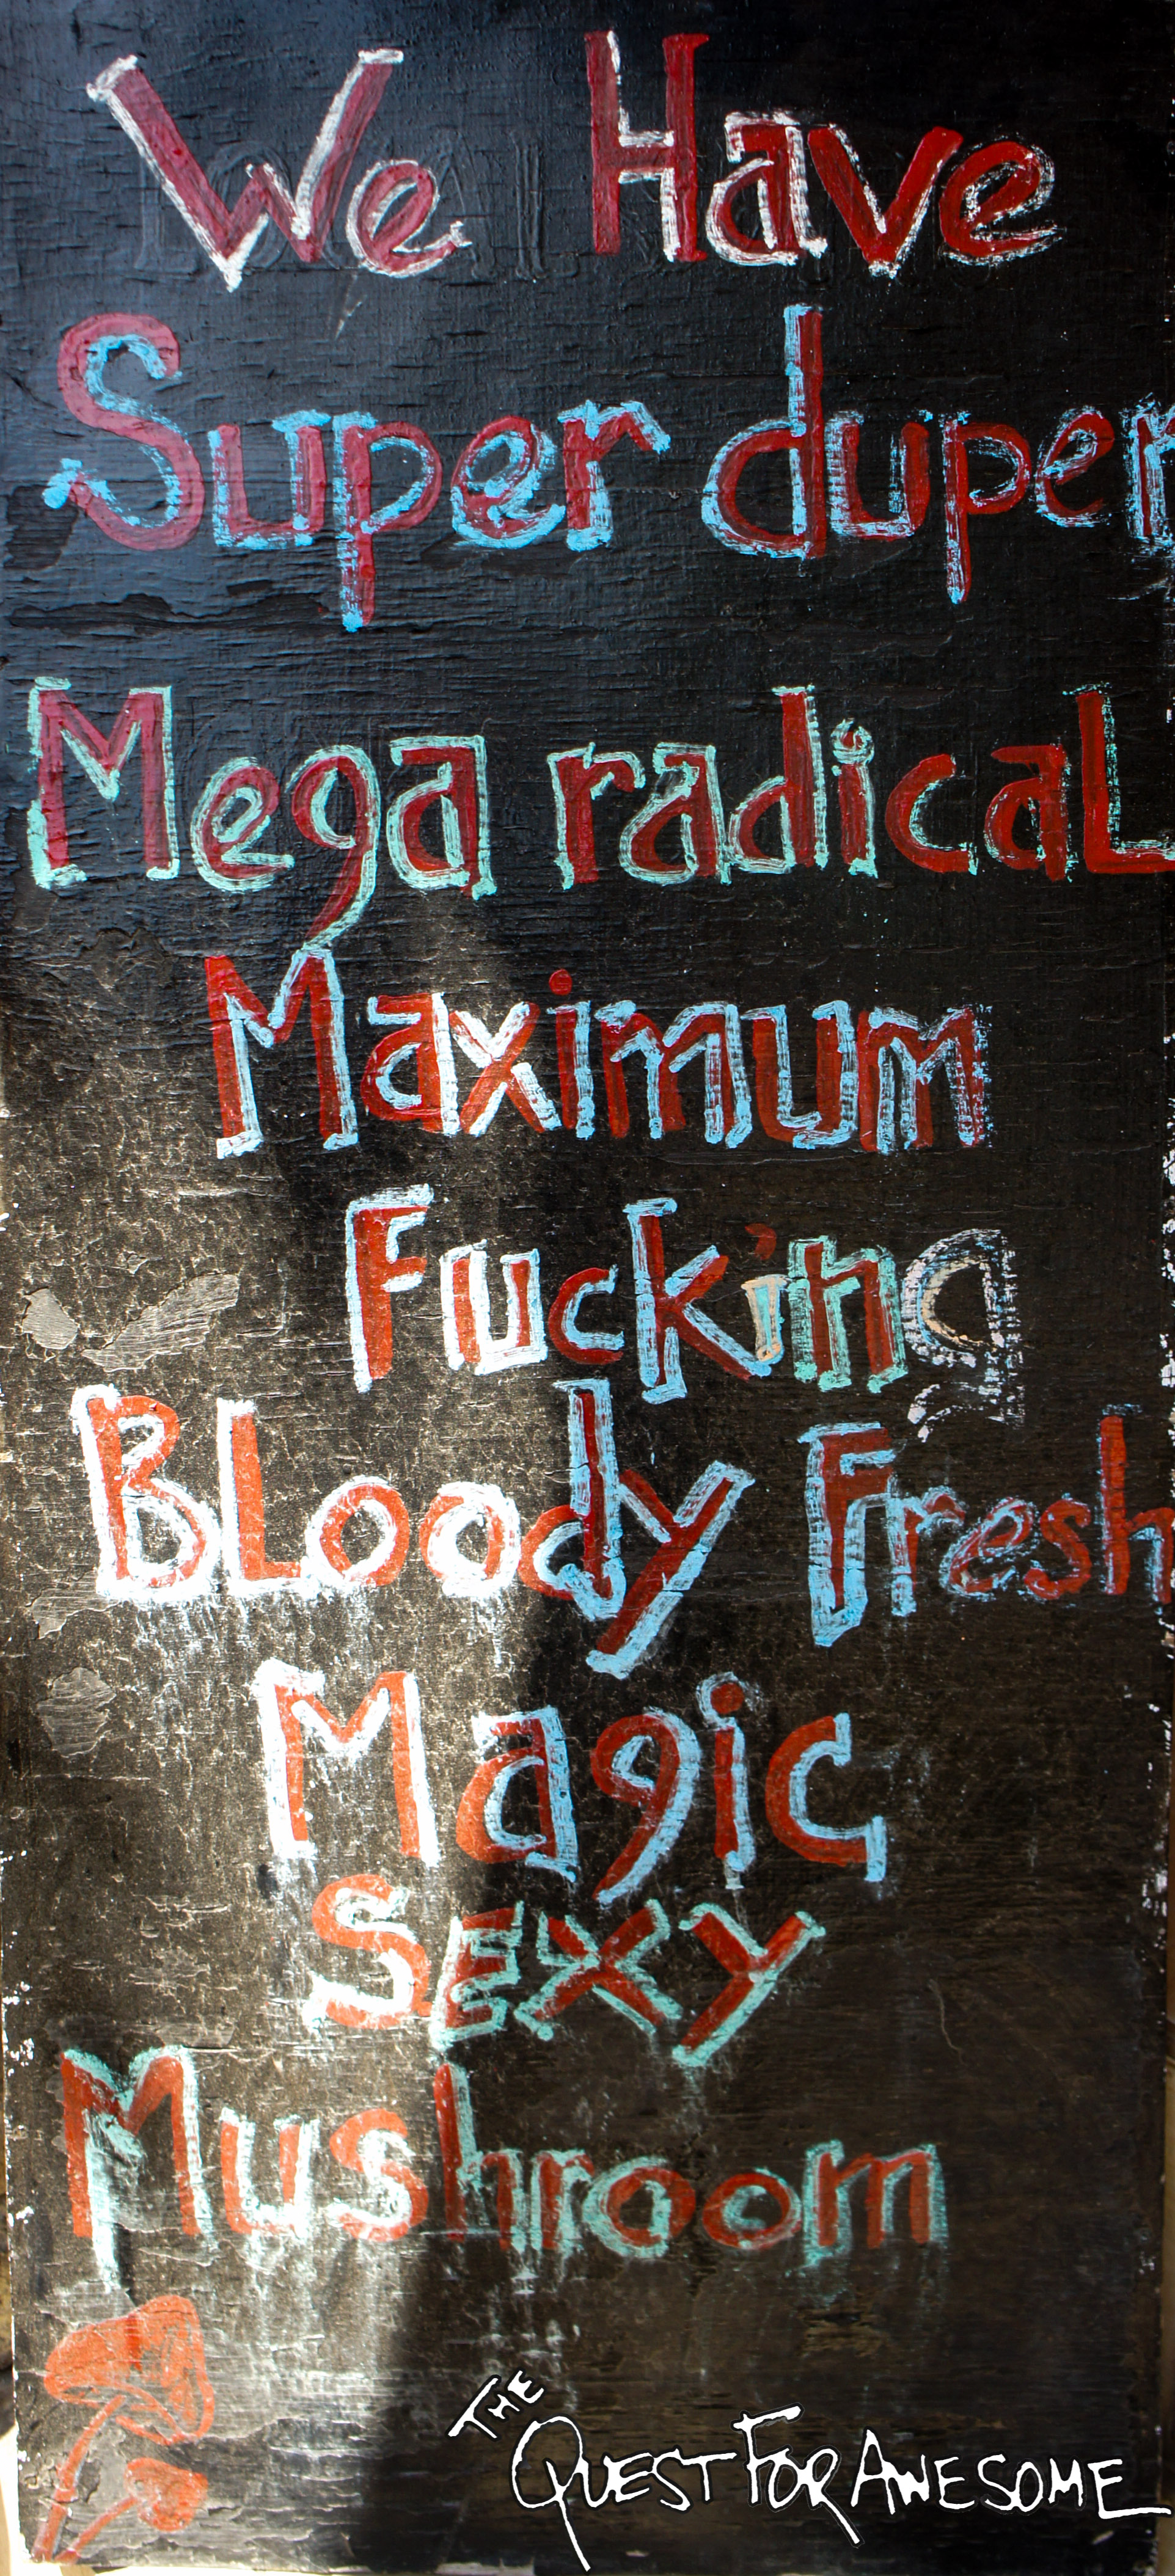 We Have
Super duper
Mega radicaL
Maximum
Fucking
BLoody Fresh
Magic
SExy
Mushroom
THE
QUEST FOR AWESOME